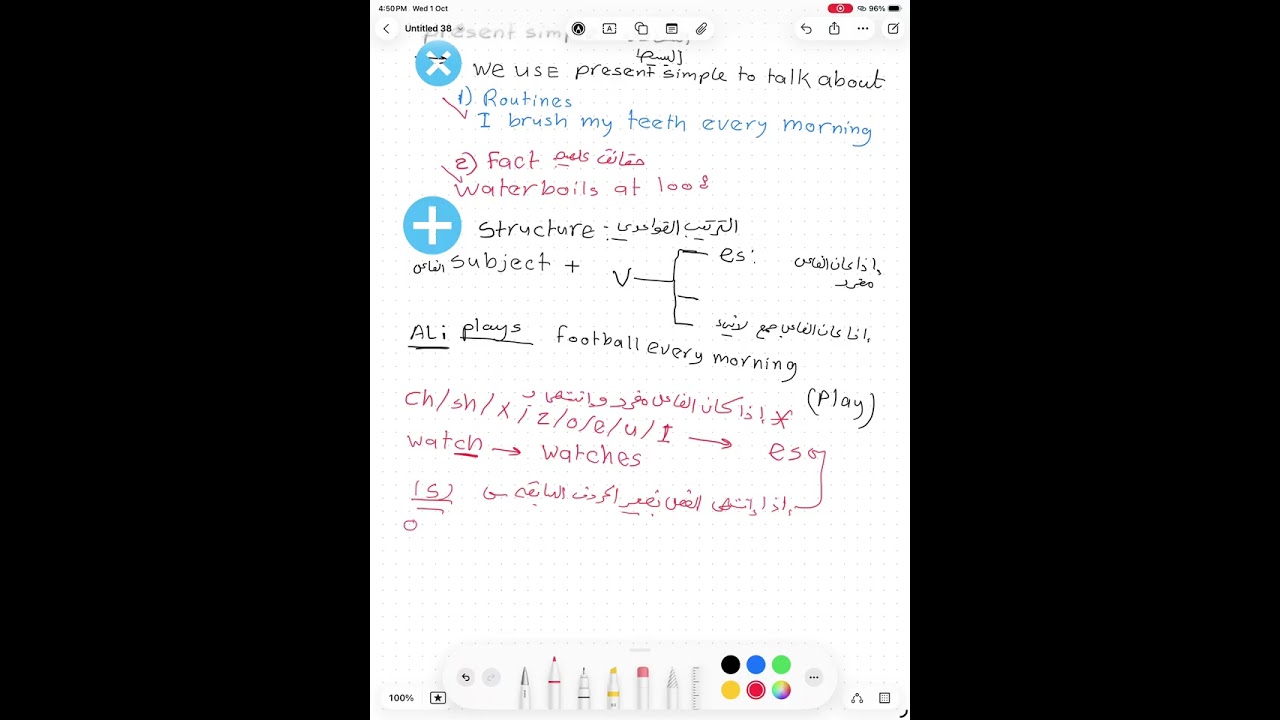 4:50PM Wed 1 Oct 96%
Untitled 38
present simple
البسيط
We use present simple to talk about
1) Routines
I brush my teeth every morning
2) Fact حقائق علميه
Water boils at 100°
Structure :- الترتيب القواعدي
الفاعل Subject + V es: إذا كان الفاعل مفرد
إذا كان الفاعل جمع
ALi plays football every morning
(Play)
* إذا كان الفاعل مفرد وانتهى بـ ch/sh/x/
z/o/e/u/I → es
watch → watches
إذا إنتهى الفعل بغير الحروف السابقه (s)
100%